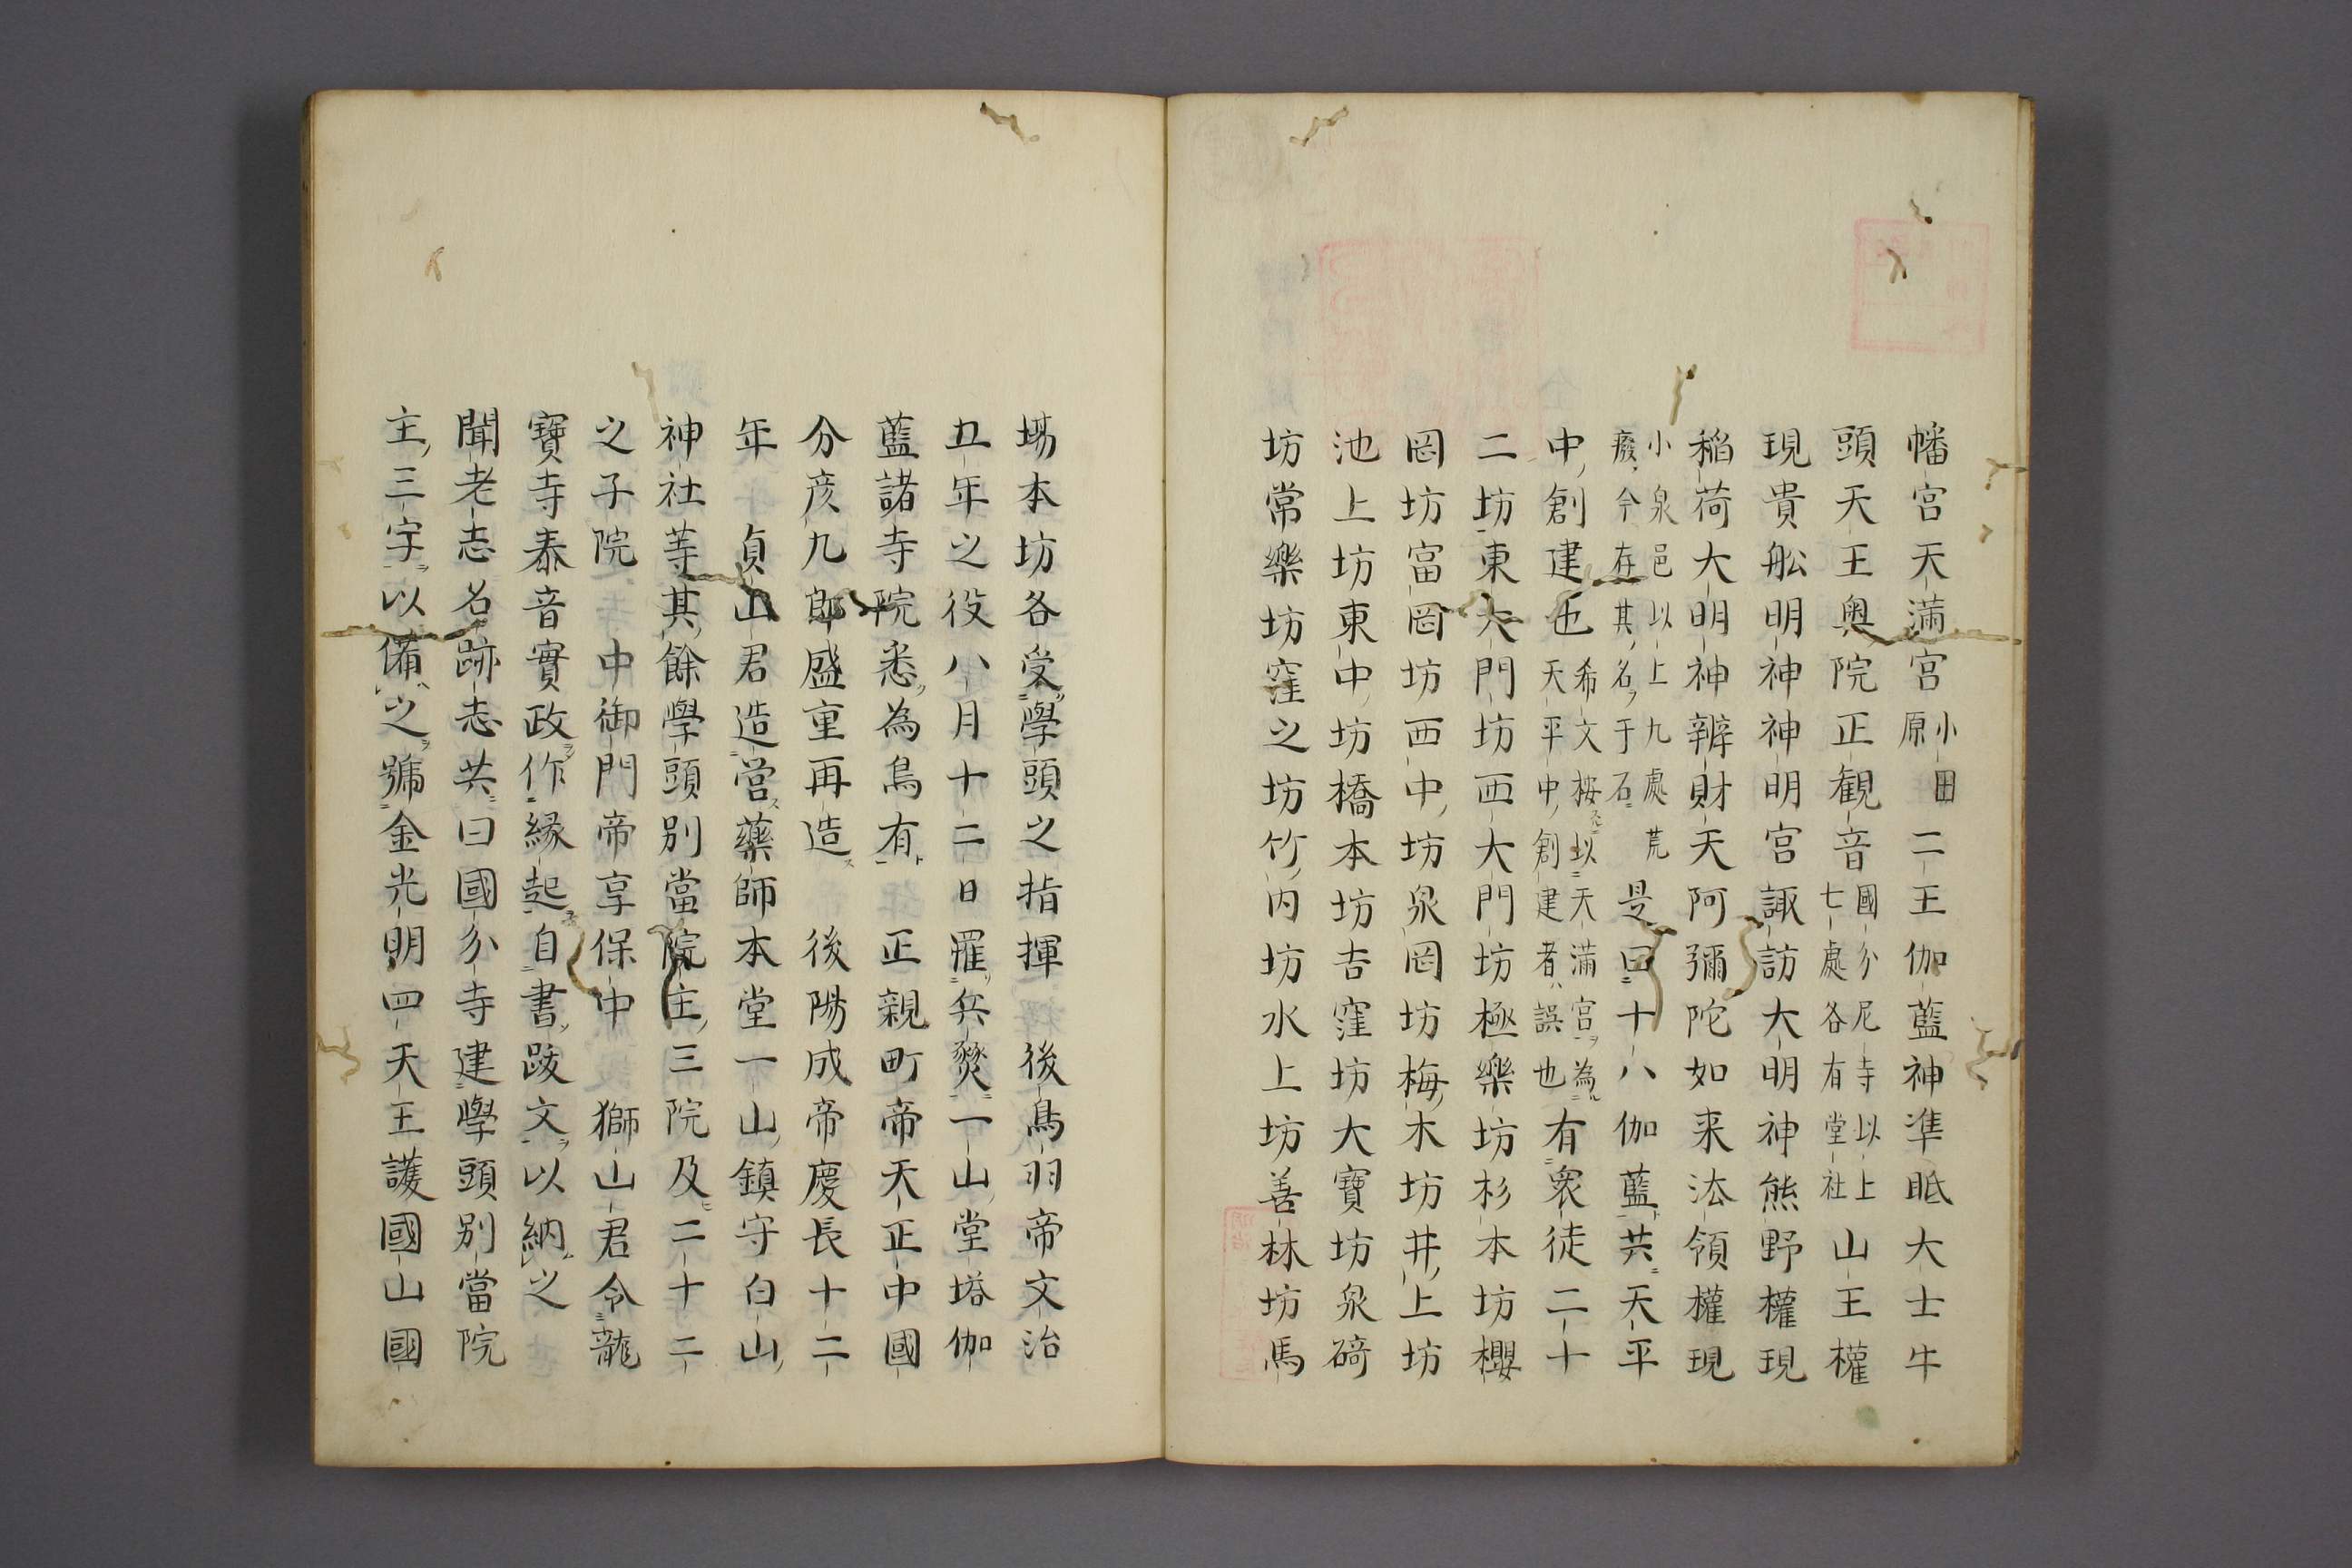 幡宮天滿宮小田原二王伽藍神準胝大士牛
頭天王奥院正観音國分尼寺以上七處各有堂社山王權
現貴舩明神神明宮諏訪大明神熊野權現
稲荷大明神辨財天阿彌陀如来法領權現
小泉邑以上九處荒癈今存其名于石是曰十八伽藍共天平
中創建也希文按以天滿宮為天平中創建者誤也有衆徒二十
二坊東大門坊西大門坊極樂坊杉本坊櫻
岡坊富岡坊西中坊泉岡坊梅木坊井上坊
池上坊東中坊橋本坊吉窪坊大寶坊泉碕
坊常樂坊窪之坊竹内坊水上坊善林坊馬
場本坊各受學頭之指揮後鳥羽帝文治
五年之役八月十二日罹兵燹一山堂塔伽
藍諸寺院悉為烏有正親町帝天正中國
分彦九郎盛重再造後陽成帝慶長十二
年貞山君造営藥師本堂一山鎮守白山
神社等其餘學頭別當院主三院及二十二
之子院中御門帝享保中獅山君令龍
寶寺泰音實政作縁起自書跋文以納之
聞老志名跡志共曰國分寺建學頭別當院
主三字以備之號金光明四天王護國山國